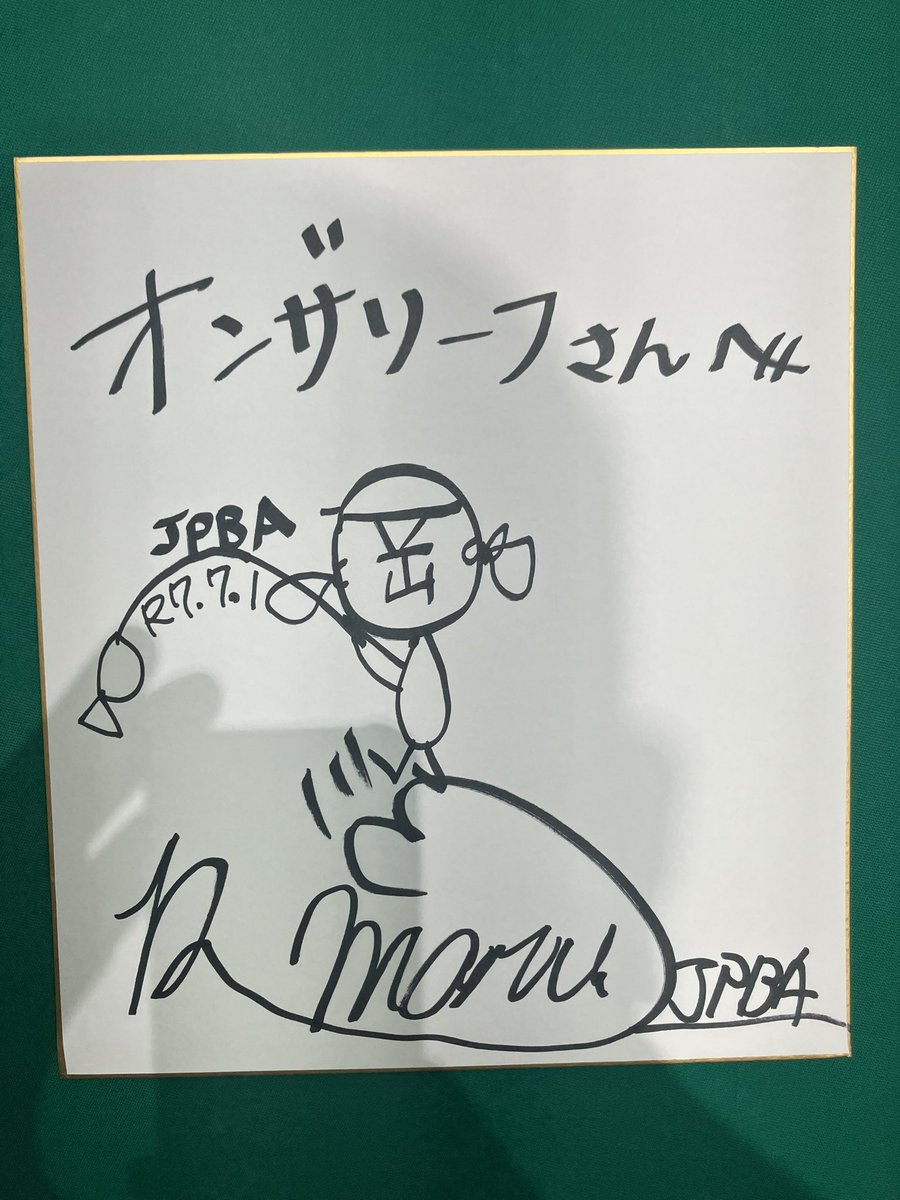 オンザリーフさんへ
JPBA
R7.7.1
岳
R maru
JPBA